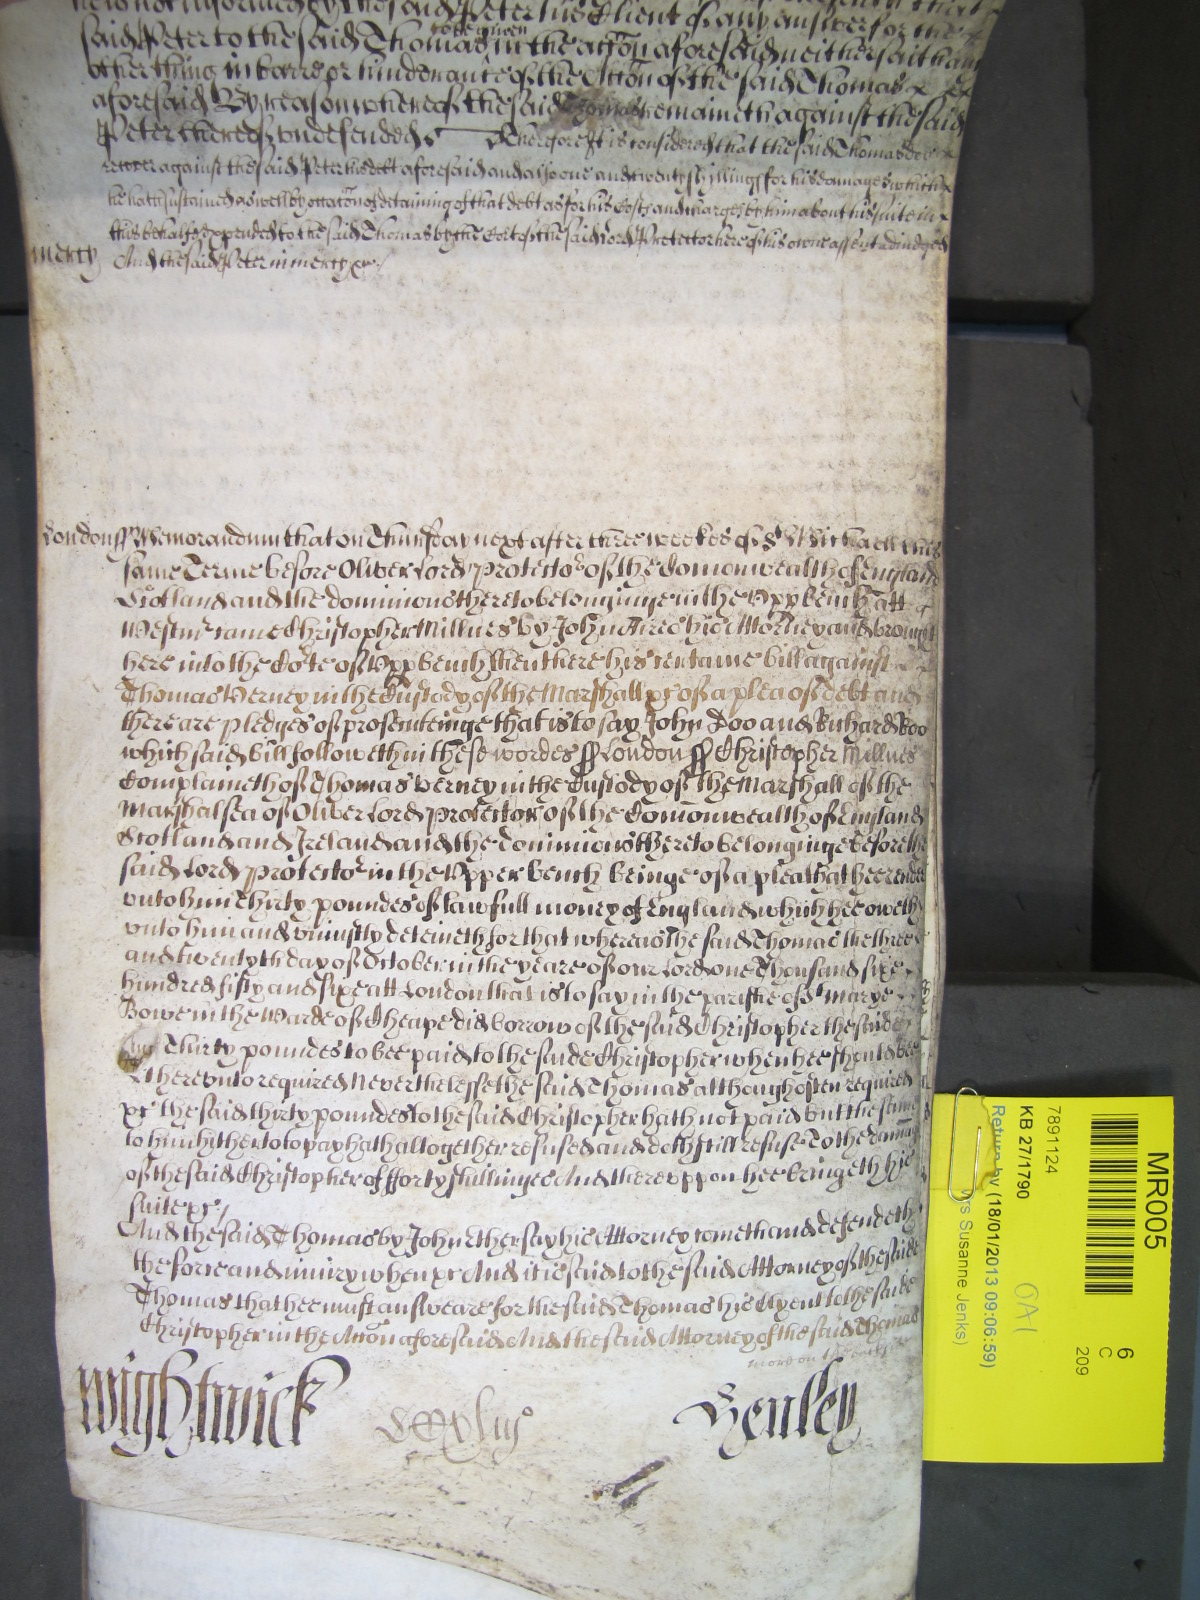 he is not informed by the said Peter his Client of any answer for the
said Peter to the said Thomas to be given in the accon aforesaid neither saith any
other thing in barre or hinderance of the Accon of the said Thomas
aforesaid By reason whereof the said Thomas remaineth against the said
Peter thereof undefended Therefore It is considered that the said Thomas doe
recover against the said Peter his debt aforesaid and also one and twenty shillings for his damages which
he hath susteined aswell by occacon of deteining of that debt as for his Costs and charges by him about his suite in
this behalfe expended to the said Thomas by the Cort of the said Lord Protector here of his owne assent adiudged
mercy And the said Peter in mercy &c
London ss Memorandum that on Thursday next after three weekes of St Michaell this
same Terme before Oliver Lord Protector of the Comonwealth of England
Scotland and the dominions thereto belonginge in the Upp bench att
Westmr came Christopher Millnes by John Aires his Attorney and brought
here into the Corte of Upp bench then there his certaine bill against
Thomas Verney in the Custody of the Marshall &c of a plea of debt and
there are pledges of prosecutinge that is to say John Doo and Richard Roo
which said bill followeth in these wordes ss London ss Christopher Millnes
Complaineth of Thomas Verney in the Custody of the Marshall of the
Marshalsea of Oliver Lord Protector of the Comonwealth of England
Scotland and Ireland and the dominions thereto belonginge before the
said Lord Protector in the Upper bench beinge of a plea that hee render
unto him Thirty poundes of lawfull money of England which hee oweth
unto him and uniustly deteineth for that whereas the said Thomas the three
and twentyth day of October in the yeare of our Lord one Thousand sixe
hundred fifty and sixe att London that is to say in the parishe of St Marye
Bowe in the Warde of Cheape did borrow of the said Christopher the saide
Thirty poundes to bee paid to the saide Christopher when hee should bee
thereunto required Neverthelesse the said Thomas although often required
&c the said thirty poundes to the said Christopher hath not paid but the same
to him hitherto to pay hath altogether refused and doth still refuse To the damage
of the said Christopher of fforty shillinges And thereuppon hee bringeth his
suite &c
And the said Thomas by John Ethersay his Attorney cometh and defendeth
the force and iniury when &c And it is said to the said Attorney of the saide
Thomas that hee must answeare for the said Thomas his Clyent to the saide
Christopher in the Accon aforesaid And the said Attorney of the said Thomas
more on the
Wightwick
Henley
MR005
6
C
209
7891124
KB 27/1790
Return by (18/01/2013 09:06:59)
rs Susanne Jenks)